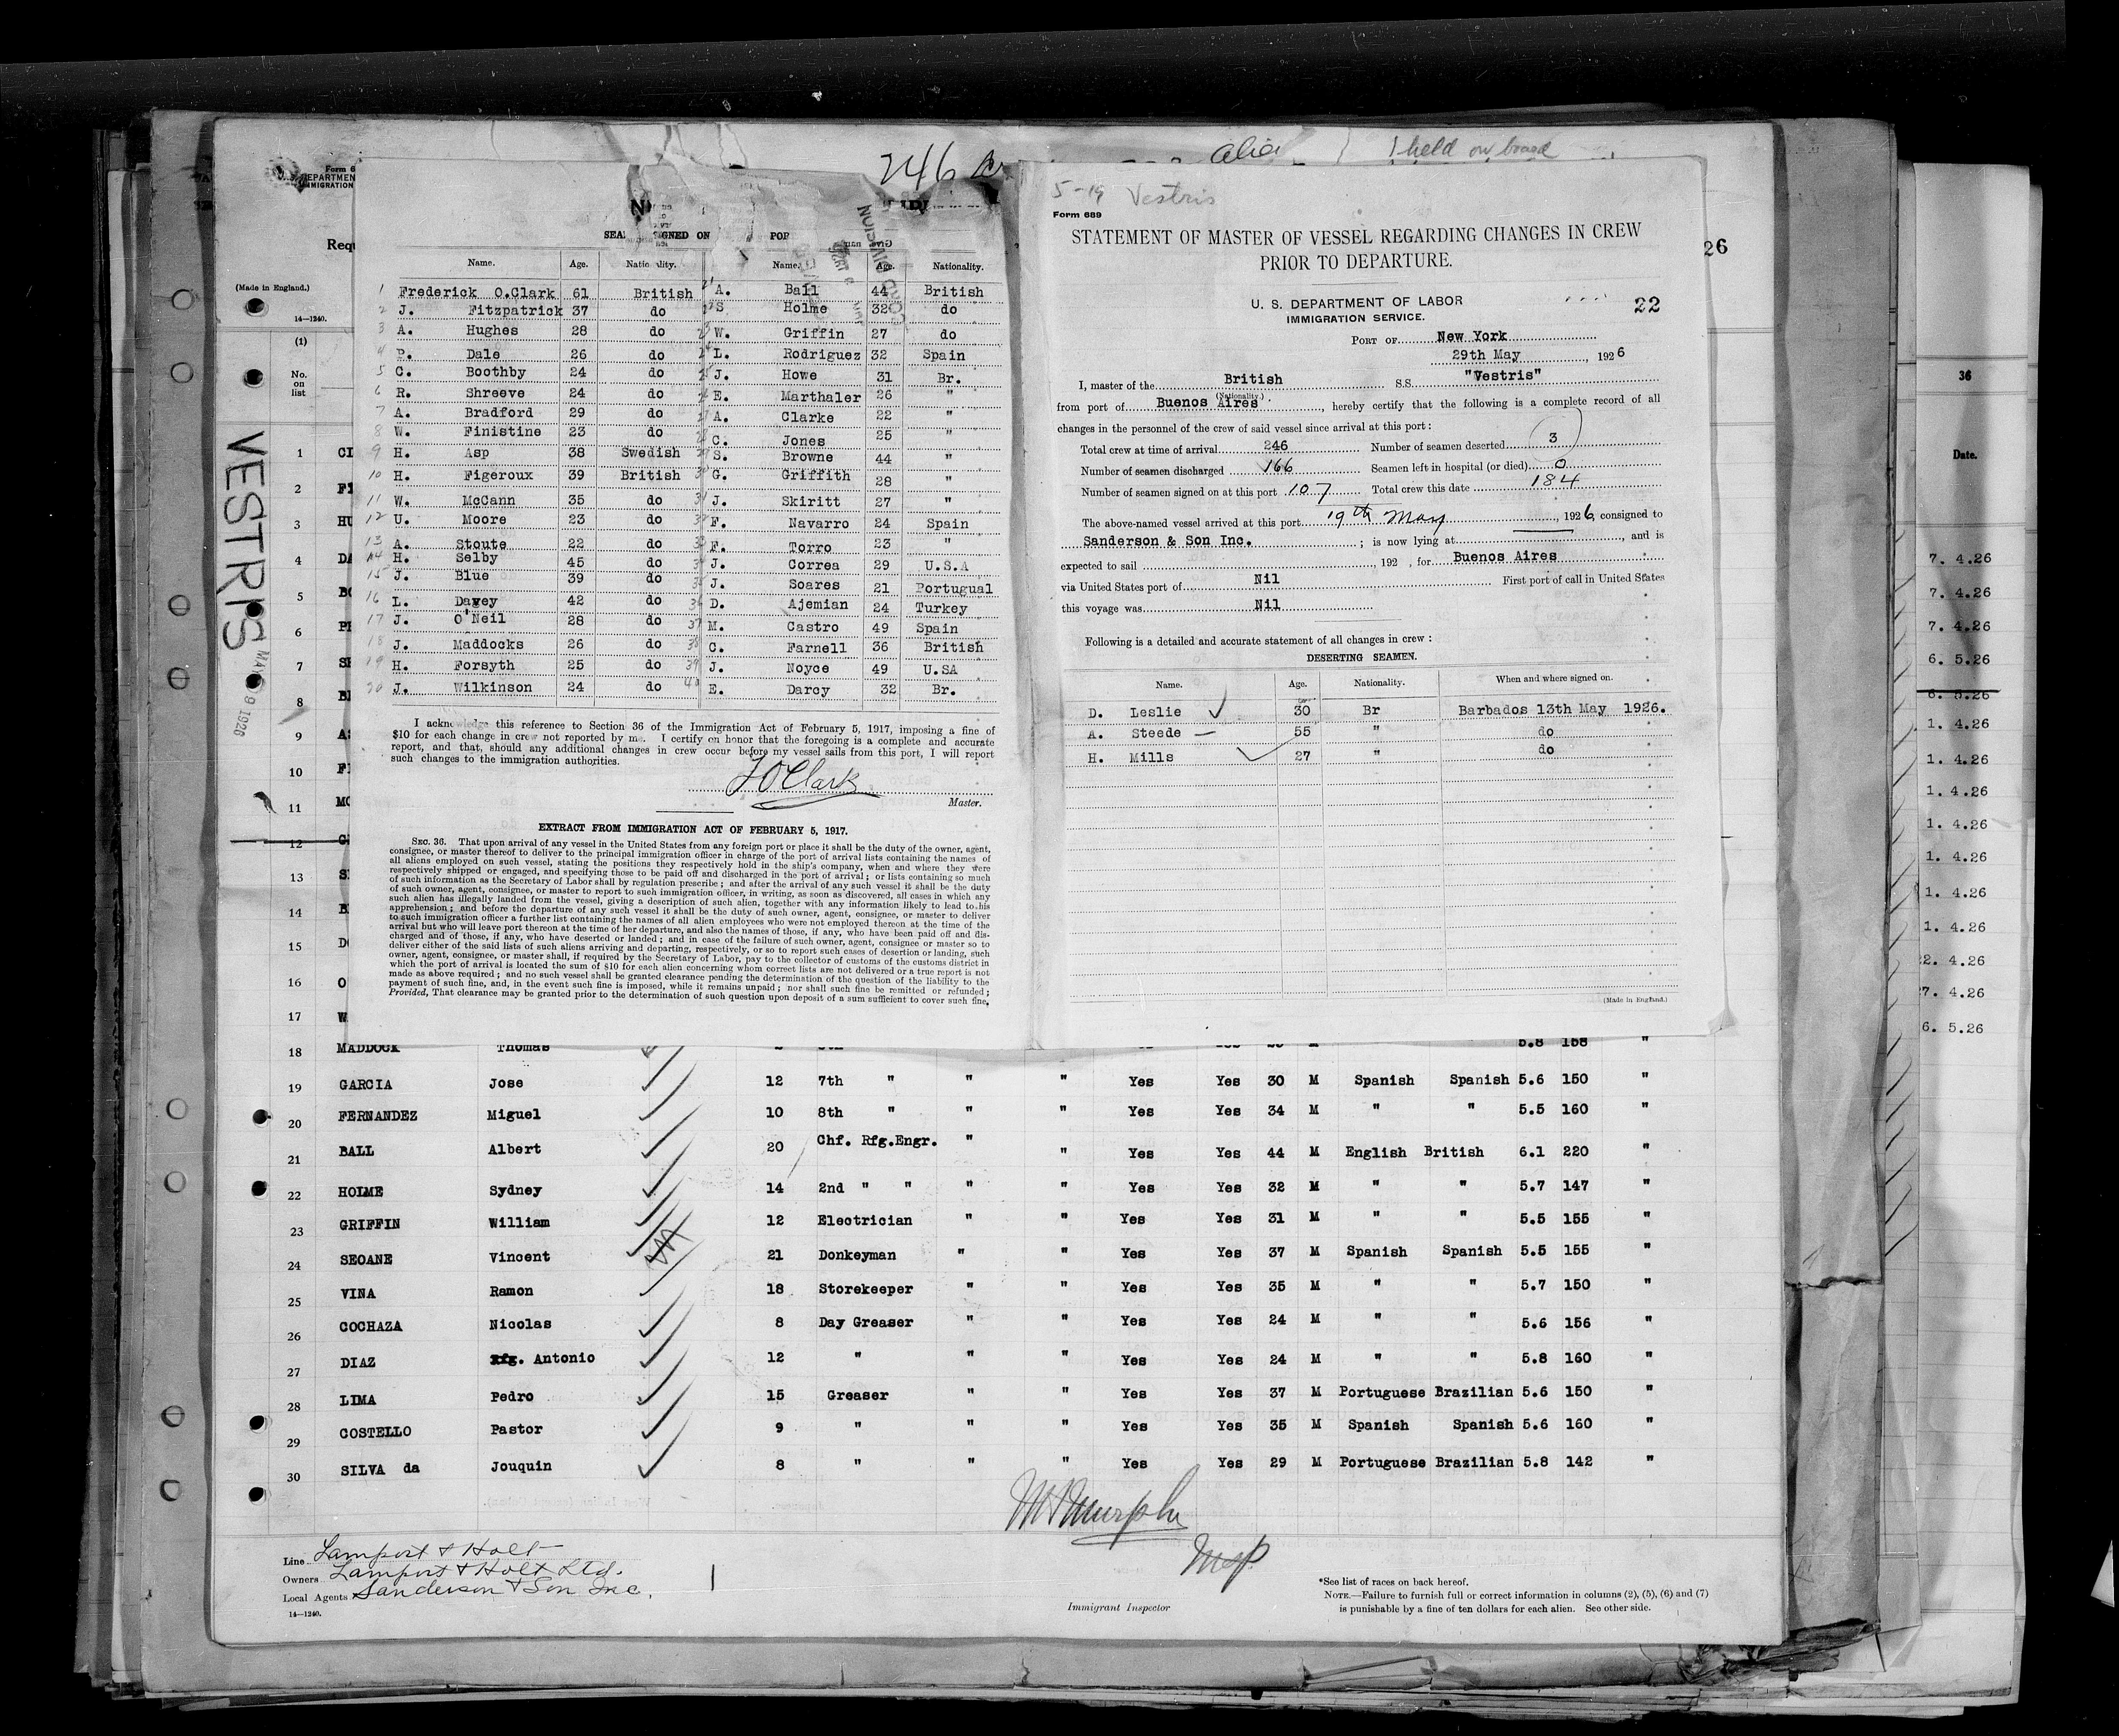 246
alien
1 held on board
Form 6
U. S. DEPARTMEN
IMMIGRATION
Requ
(Made in England.)
14—1240.
(1)
No.
on
list
VESTRIS
MAY 19 1926
26
36
Date.
SEA GNED ON POR
Name. Age. Nationality. Name. Age. Nationality.
1 Frederick O.Clark 61 British A. Ball 44 British
2 J. Fitzpatrick 37 do S Holme 32 do
3 A. Hughes 28 do W. Griffin 27 do
4 P. Dale 26 do L. Rodriguez 32 Spain
5 C. Boothby 24 do J. Howe 31 Br.
6 R. Shreeve 24 do E. Marthaler 26 "
7 A. Bradford 29 do A. Clarke 22 "
8 W. Finistine 23 do C. Jones 25 "
9 H. Asp 38 Swedish S. Browne 44 "
10 H. Figeroux 39 British G. Griffith 28 "
11 W. McCann 35 do 31 J. Skiritt 27 "
12 U. Moore 23 do F. Navarro 24 Spain
13 A. Stoute 22 do F. Torro 23 "
14 H. Selby 45 do J. Correa 29 U.S.A
15 J. Blue 39 do J. Soares 21 Portugual
16 L. Davey 42 do 36 D. Ajemian 24 Turkey
17 J. O'Neil 28 do 37 M. Castro 49 Spain
18 J. Maddocks 26 do 38 C. Farnell 36 British
19 H. Forsyth 25 do 39 J. Noyce 49 U.SA
20 J. Wilkinson 24 do 40 E. Darcy 32 Br.
I acknowledge this reference to Section 36 of the Immigration Act of February 5, 1917, imposing a fine of
$10 for each change in crew not reported by me. I certify on honor that the foregoing is a complete and accurate
report, and that, should any additional changes in crew occur before my vessel sails from this port, I will report
such changes to the immigration authorities.
F O Clark
Master.
EXTRACT FROM IMMIGRATION ACT OF FEBRUARY 5, 1917.
SEC. 36. That upon arrival of any vessel in the United States from any foreign port or place it shall be the duty of the owner, agent,
consignee, or master thereof to deliver to the principal immigration officer in charge of the port of arrival lists containing the names of
all aliens employed on such vessel, stating the positions they respectively hold in the ship's company, when and where they were
respectively shipped or engaged, and specifying those to be paid off and discharged in the port of arrival; or lists containing so much
of such information as the Secretary of Labor shall by regulation prescribe; and after the arrival of any such vessel it shall be the duty
of such owner, agent, consignee, or master to report to such immigration officer, in writing, as soon as discovered, all cases in which any
such alien has illegally landed from the vessel, giving a description of such alien, together with any information likely to lead to his
apprehension; and before the departure of any such vessel it shall be the duty of such owner, agent, consignee, or master to deliver
to such immigration officer a further list containing the names of all alien employees who were not employed thereon at the time of the
arrival but who will leave port thereon at the time of her departure, and also the names of those, if any, who have been paid off and dis-
charged and of those, if any, who have deserted or landed; and in case of the failure of such owner, agent, consignee or master so to
deliver either of the said lists of such aliens arriving and departing, respectively, or so to report such cases of desertion or landing, such
owner, agent, consignee, or master shall, if required by the Secretary of Labor, pay to the collector of customs of the customs district in
which the port of arrival is located the sum of $10 for each alien concerning whom correct lists are not delivered or a true report is not
made as above required; and no such vessel shall be granted clearance pending the determination of the question of the liability to the
payment of such fine, and, in the event such fine is imposed, while it remains unpaid; nor shall such fine be remitted or refunded;
Provided, That clearance may be granted prior to the determination of such question upon deposit of a sum sufficient to cover such fine.
5-19 Vestris
Form 689
STATEMENT OF MASTER OF VESSEL REGARDING CHANGES IN CREW
PRIOR TO DEPARTURE.
U. S. DEPARTMENT OF LABOR
IMMIGRATION SERVICE.
22
PORT OF New York
29th May, 1926
I, master of the British S.S. "Vestris"
(Nationality.)
from port of Buenos Aires, hereby certify that the following is a complete record of all
changes in the personnel of the crew of said vessel since arrival at this port:
Total crew at time of arrival 246 Number of seamen deserted 3
Number of seamen discharged 166 Seamen left in hospital (or died) 0
Number of seamen signed on at this port 107 Total crew this date 184
The above-named vessel arrived at this port 19th May, 1926, consigned to
Sanderson & Son Inc. ; is now lying at , and is
expected to sail , 192 , for Buenos Aires
via United States port of Nil First port of call in United States
this voyage was Nil
Following is a detailed and accurate statement of all changes in crew:
DESERTING SEAMEN.
Name. Age. Nationality. When and where signed on.
D. Leslie 30 Br Barbados 13th May 1926.
A. Steede 55 " do
H. Mills 27 " do
(Made in England.)
1 CI
2 FI
3 HU
4 DA
5 BO
6
7 SH
8
9 AS
10 FI
11 MC
12
13
14
15
16 O
17 W
7. 4.26
7. 4.26
7. 4.26
6. 5.26
6. 5.26
1. 4.26
1. 4.26
1. 4.26
1. 4.26
1. 4.26
1. 4.26
1. 4.26
22. 4.26
27. 4.26
6. 5.26
18 MADDOCK Thomas 5.8 158 "
19 GARCIA Jose 12 7th " " " Yes Yes 30 M Spanish Spanish 5.6 150 "
20 FERNANDEZ Miguel 10 8th " " " Yes Yes 34 M " " 5.5 160 "
21 BALL Albert 20 Chf. Rfg.Engr. " " Yes Yes 44 M English British 6.1 220 "
22 HOLME Sydney 14 2nd " " " " Yes Yes 32 M " " 5.7 147 "
23 GRIFFIN William 12 Electrician " " Yes Yes 31 M " " 5.5 155 "
24 SEOANE Vincent 21 Donkeyman " " Yes Yes 37 M Spanish Spanish 5.5 155 "
25 VINA Ramon 18 Storekeeper " " Yes Yes 35 M " " 5.7 150 "
26 COCHAZA Nicolas 8 Day Greaser " " Yes Yes 24 M " " 5.6 156 "
27 DIAZ Antonio 12 " " " Yes Yes 24 M " " 5.8 160 "
28 LIMA Pedro 15 Greaser " " Yes Yes 37 M Portuguese Brazilian 5.6 150 "
29 COSTELLO Pastor 9 " " " Yes Yes 35 M Spanish Spanish 5.6 160 "
30 SILVA da Jouquin 8 " " " Yes Yes 29 M Portuguese Brazilian 5.8 142 "
Line Lamport & Holt
Owners Lamport & Holt Ltd.
Local Agents Sanderson & Son Inc.
14—1240.
Immigrant Inspector
*See list of races on back hereof.
NOTE.—Failure to furnish full or correct information in columns (2), (5), (6) and (7)
is punishable by a fine of ten dollars for each alien. See other side.